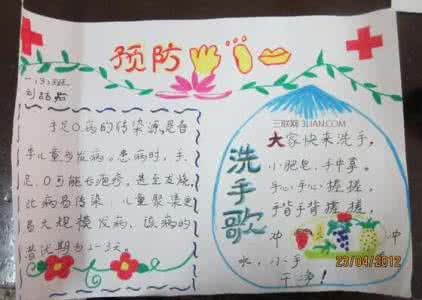 预防
一(3)班
三联网 3LIAN.COM
手足口病的传染源是患
手儿童与发病。患病时,手、
足、口可能长疱疹,甚至发烧,
此病易传染,儿童聚集更
易大规模发病,该病的
潜伏期为2-3天。
洗手歌
大家快来洗手,
小肥皂,手中拿。
手心手心握握,
手背手背握握,
冲冲
水,小手
干净!
23/04/2012